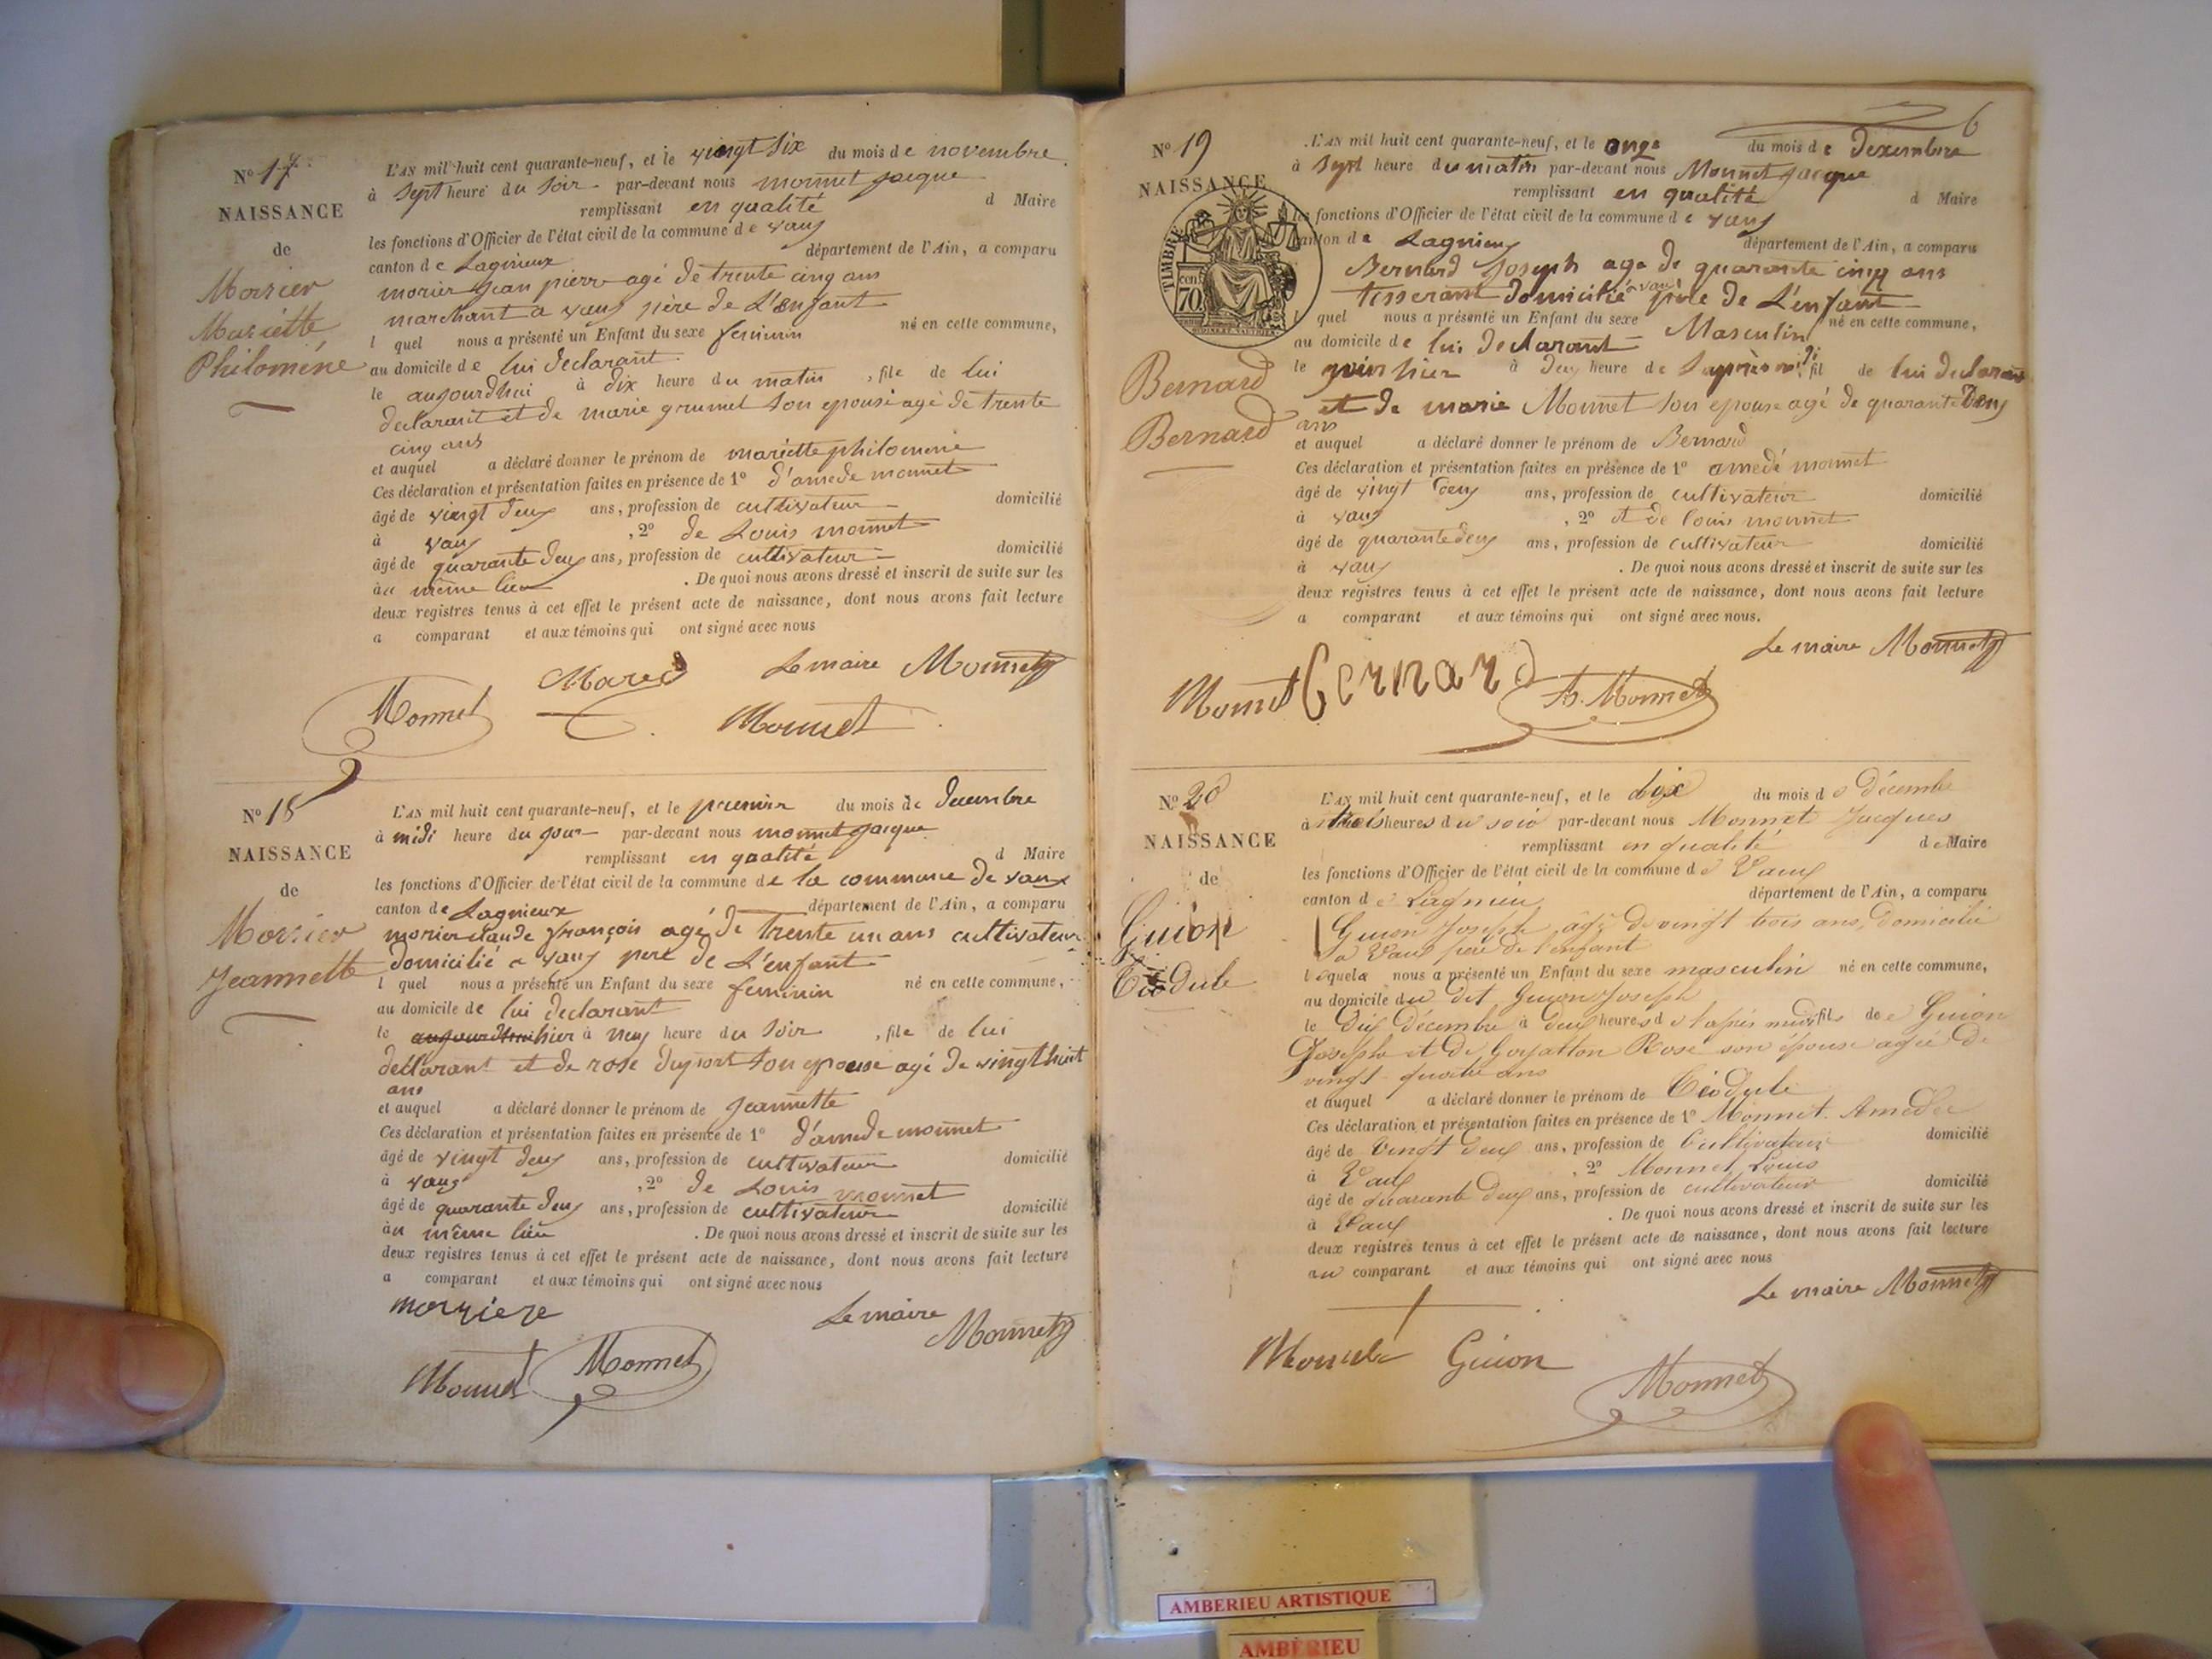 No 17
NAISSANCE
de
Morier
Mariette
Philoméne
L'AN mil huit cent quarante-neuf, et le vingt six du mois de novembre
à sept heure du soir par-devant nous monnet jacque
remplissant en qualité d Maire
les fonctions d'Officier de l'état civil de la commune de vaux
canton de Lagnieux département de l'Ain, a comparu
morier jean pierre agé de trente cinq ans
marchant a vaux père de L'enfant
l quel nous a présenté un Enfant du sexe feminin né en cette commune,
au domicile de lui declarant
le aujourdhui à dix heure du matin , file de lui
declarant et de marie grumet son epouse agé de trente
cinq ans
et auquel a déclaré donner le prénom de mariette philomene
Ces déclaration et présentation faites en présence de 1º d'amede monnet
âgé de vingt deux ans, profession de cultivateur domicilié
à vaux , 2º de Louis monnet
âgé de quarante deux ans, profession de cultivateur domicilié
àu même lieu . De quoi nous avons dressé et inscrit de suite sur les
deux registres tenus à cet effet le présent acte de naissance, dont nous avons fait lecture
a comparant et aux témoins qui ont signé avec nous
Le maire Monnet
Monnet
Monnet
No 18
NAISSANCE
de
Morier
Jeannette
L'AN mil huit cent quarante-neuf, et le premier du mois de decembre
à midi heure du jour par-devant nous monnet jacque
remplissant en qualité d Maire
les fonctions d'Officier de l'état civil de la commune de la commune de vaux
canton de Lagnieux département de l'Ain, a comparu
morier claude françois agé de trente un ans cultivateur
domicilié a vaux pere de L'enfant
l quel nous a présenté un Enfant du sexe feminin né en cette commune,
au domicile de lui declarant
le aujourdhui hier à neuf heure du soir , file de lui
declarant et de rose duport son epouse agé de vingt huit
ans
et auquel a déclaré donner le prénom de Jeannette
Ces déclaration et présentation faites en présence de 1º d'amede monnet
âgé de vingt deux ans, profession de cultivateur domicilié
à vaux , 2º de Louis monnet
âgé de quarante deux ans, profession de cultivateur domicilié
àu même lieu . De quoi nous avons dressé et inscrit de suite sur les
deux registres tenus à cet effet le présent acte de naissance, dont nous avons fait lecture
a comparant et aux témoins qui ont signé avec nous
morriere Le maire
Monnet
Monnet Monnet
6
No 19
NAISSANCE
TIMBRE
70 cen
Bernard
Bernard
L'AN mil huit cent quarante-neuf, et le onze du mois de dexembre
à sept heure du matin par-devant nous Monnet jacque
remplissant en qualité d Maire
les fonctions d'Officier de l'état civil de la commune de vaux
canton de Lagnieux département de l'Ain, a comparu
Bernard Joseph age de quarante cinq ans
tisserant domicilié a vaux père de L'enfant
l quel nous a présenté un Enfant du sexe Masculin né en cette commune,
au domicile de lui declarant
le hier à deux heure de l'après midi fil de lui declarant
et de marie Monnet son epouse agé de quarante deux
ans
et auquel a déclaré donner le prénom de Bernard
Ces déclaration et présentation faites en présence de 1º amedé monnet
âgé de vingt deux ans, profession de cultivateur domicilié
à vaux , 2º et de louis monnet
âgé de quarante deux ans, profession de cultivateur domicilié
à vaux . De quoi nous avons dressé et inscrit de suite sur les
deux registres tenus à cet effet le présent acte de naissance, dont nous avons fait lecture
a comparant et aux témoins qui ont signé avec nous.
Le maire Monnet
Monnet Bernard Monnet
No 20
NAISSANCE
de
Guion
Téodule
L'AN mil huit cent quarante-neuf, et le dix du mois de décembre
à trois heures du soir par-devant nous Monnet Jacques
remplissant en qualité de Maire
les fonctions d'Officier de l'état civil de la commune de Vaux
canton de Lagnieu département de l'Ain, a comparu
Guion Joseph âgé de vingt trois ans, domicilié
à Vaux père de l'enfant
lequel nous a présenté un Enfant du sexe masculin né en cette commune,
au domicile du dit Guion Joseph
le dix décembre à deux heures de l'après midi fils de Guion
Joseph et de Goyatton Rose son épouse agée de
vingt quatre ans
et auquel a déclaré donner le prénom de Téodule
Ces déclaration et présentation faites en présence de 1º Monnet Amedée
âgé de vingt deux ans, profession de Cultivateur domicilié
à Vaux , 2º Monnet Louis
âgé de quarante deux ans, profession de cultivateur domicilié
à Vaux . De quoi nous avons dressé et inscrit de suite sur les
deux registres tenus à cet effet le présent acte de naissance, dont nous avons fait lecture
au comparant et aux témoins qui ont signé avec nous
Le maire Monnet
Monnet Guion
Monnet
AMBERIEU ARTISTIQUE
AMBERIEU